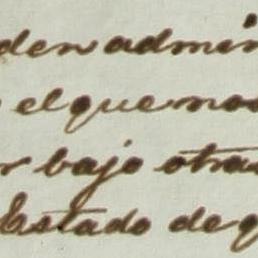 den admin
el que no
r bajo otra
Estado de q